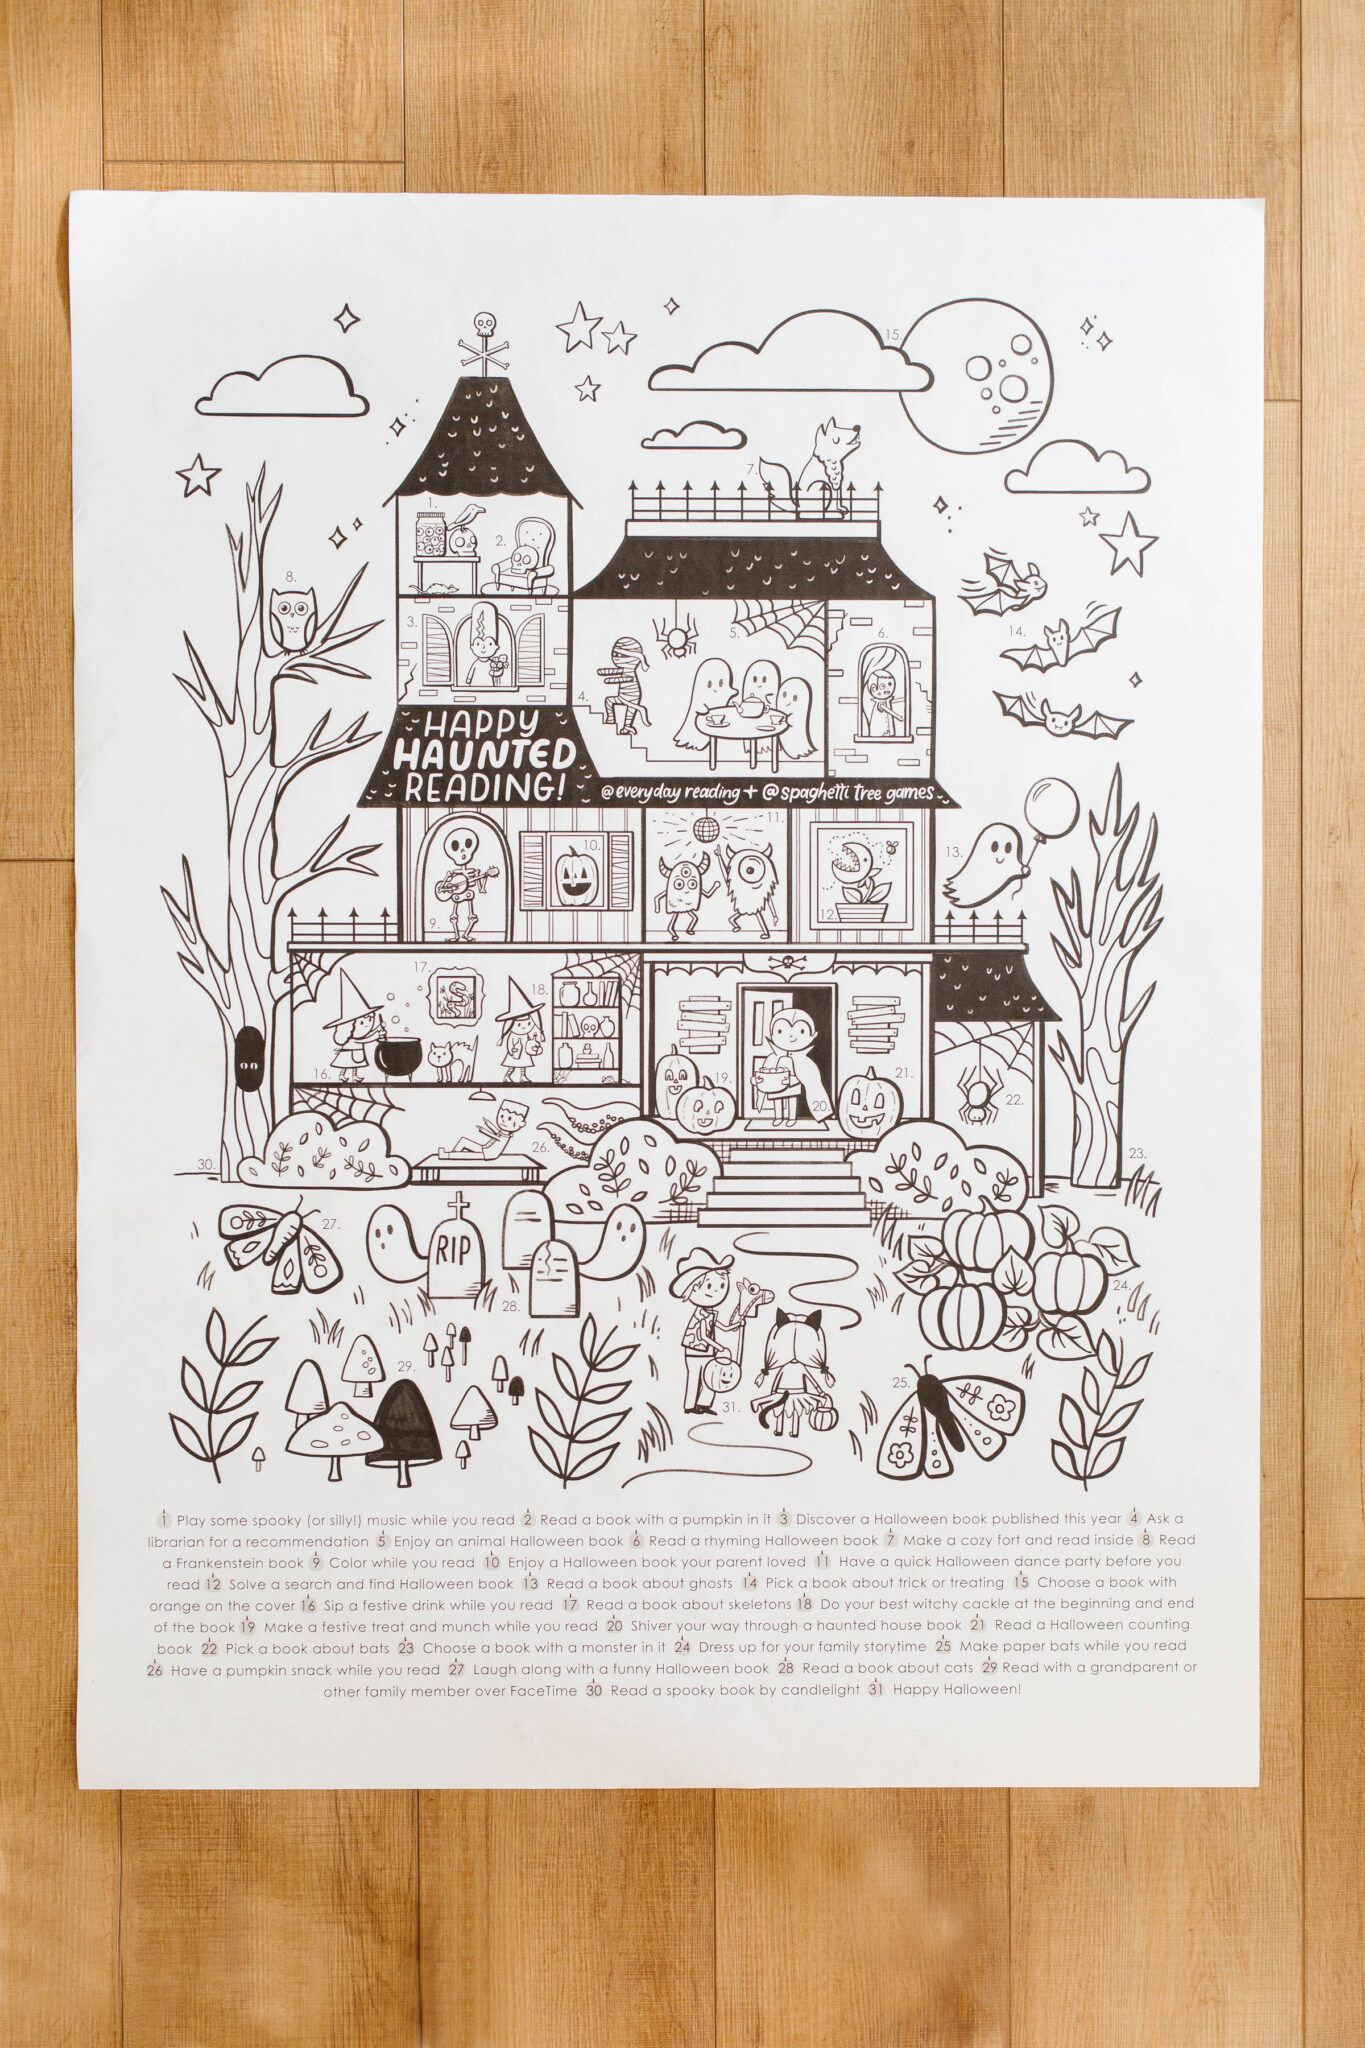 15.
7.
1.
2.
8.
3.
5.
6.
14.
4.
HAPPY
HAUNTED
READING!
@everyday reading + @spaghetti tree games
11.
10.
13.
12.
9.
17.
18.
16.
19.
21.
20.
22.
26.
23.
30.
27.
RIP
24.
28.
29.
25.
31.
1 Play some spooky (or silly!) music while you read 2 Read a book with a pumpkin in it 3 Discover a Halloween book published this year 4 Ask a
librarian for a recommendation 5 Enjoy an animal Halloween book 6 Read a rhyming Halloween book 7 Make a cozy fort and read inside 8 Read
a Frankenstein book 9 Color while you read 10 Enjoy a Halloween book your parent loved 11 Have a quick Halloween dance party before you
read 12 Solve a search and find Halloween book 13 Read a book about ghosts 14 Pick a book about trick or treating 15 Choose a book with
orange on the cover 16 Sip a festive drink while you read 17 Read a book about skeletons 18 Do your best witchy cackle at the beginning and end
of the book 19 Make a festive treat and munch while you read 20 Shiver your way through a haunted house book 21 Read a Halloween counting
book 22 Pick a book about bats 23 Choose a book with a monster in it 24 Dress up for your family storytime 25 Make paper bats while you read
26 Have a pumpkin snack while you read 27 Laugh along with a funny Halloween book 28 Read a book about cats 29 Read with a grandparent or
other family member over FaceTime 30 Read a spooky book by candlelight 31 Happy Halloween!